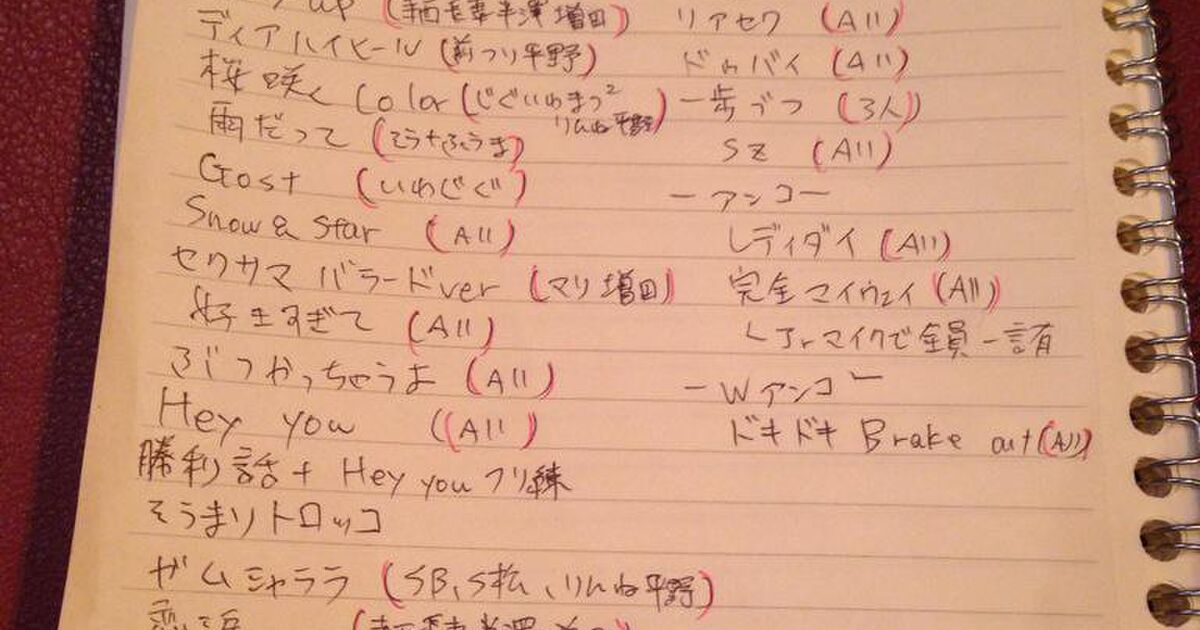 up (増田)
ディアハイヒール (前つり平野)
桜咲く Color (じぐいわまつ²
りんね平野)
雨だって (そう+ふうま)
Gost (いわじぐ)
Snow & Star (All)
セクサマ バラードver (マリ増田)
好きすぎて (All)
ぶつかっちゃうよ (All)
Hey you (All)
勝利話 + Hey you フリ練
そうまりトロッコ
ガムシャララ (SB、S松、りんね平野)
リアセク (All)
ドゥバイ (All)
一歩づつ (3人)
SZ (All)
ーアンコー
レディダイ (All)
完全マイウェイ (All)
└Jrマイクで全員一言有
ーWアンコー
ドキドキ Brake out (All)